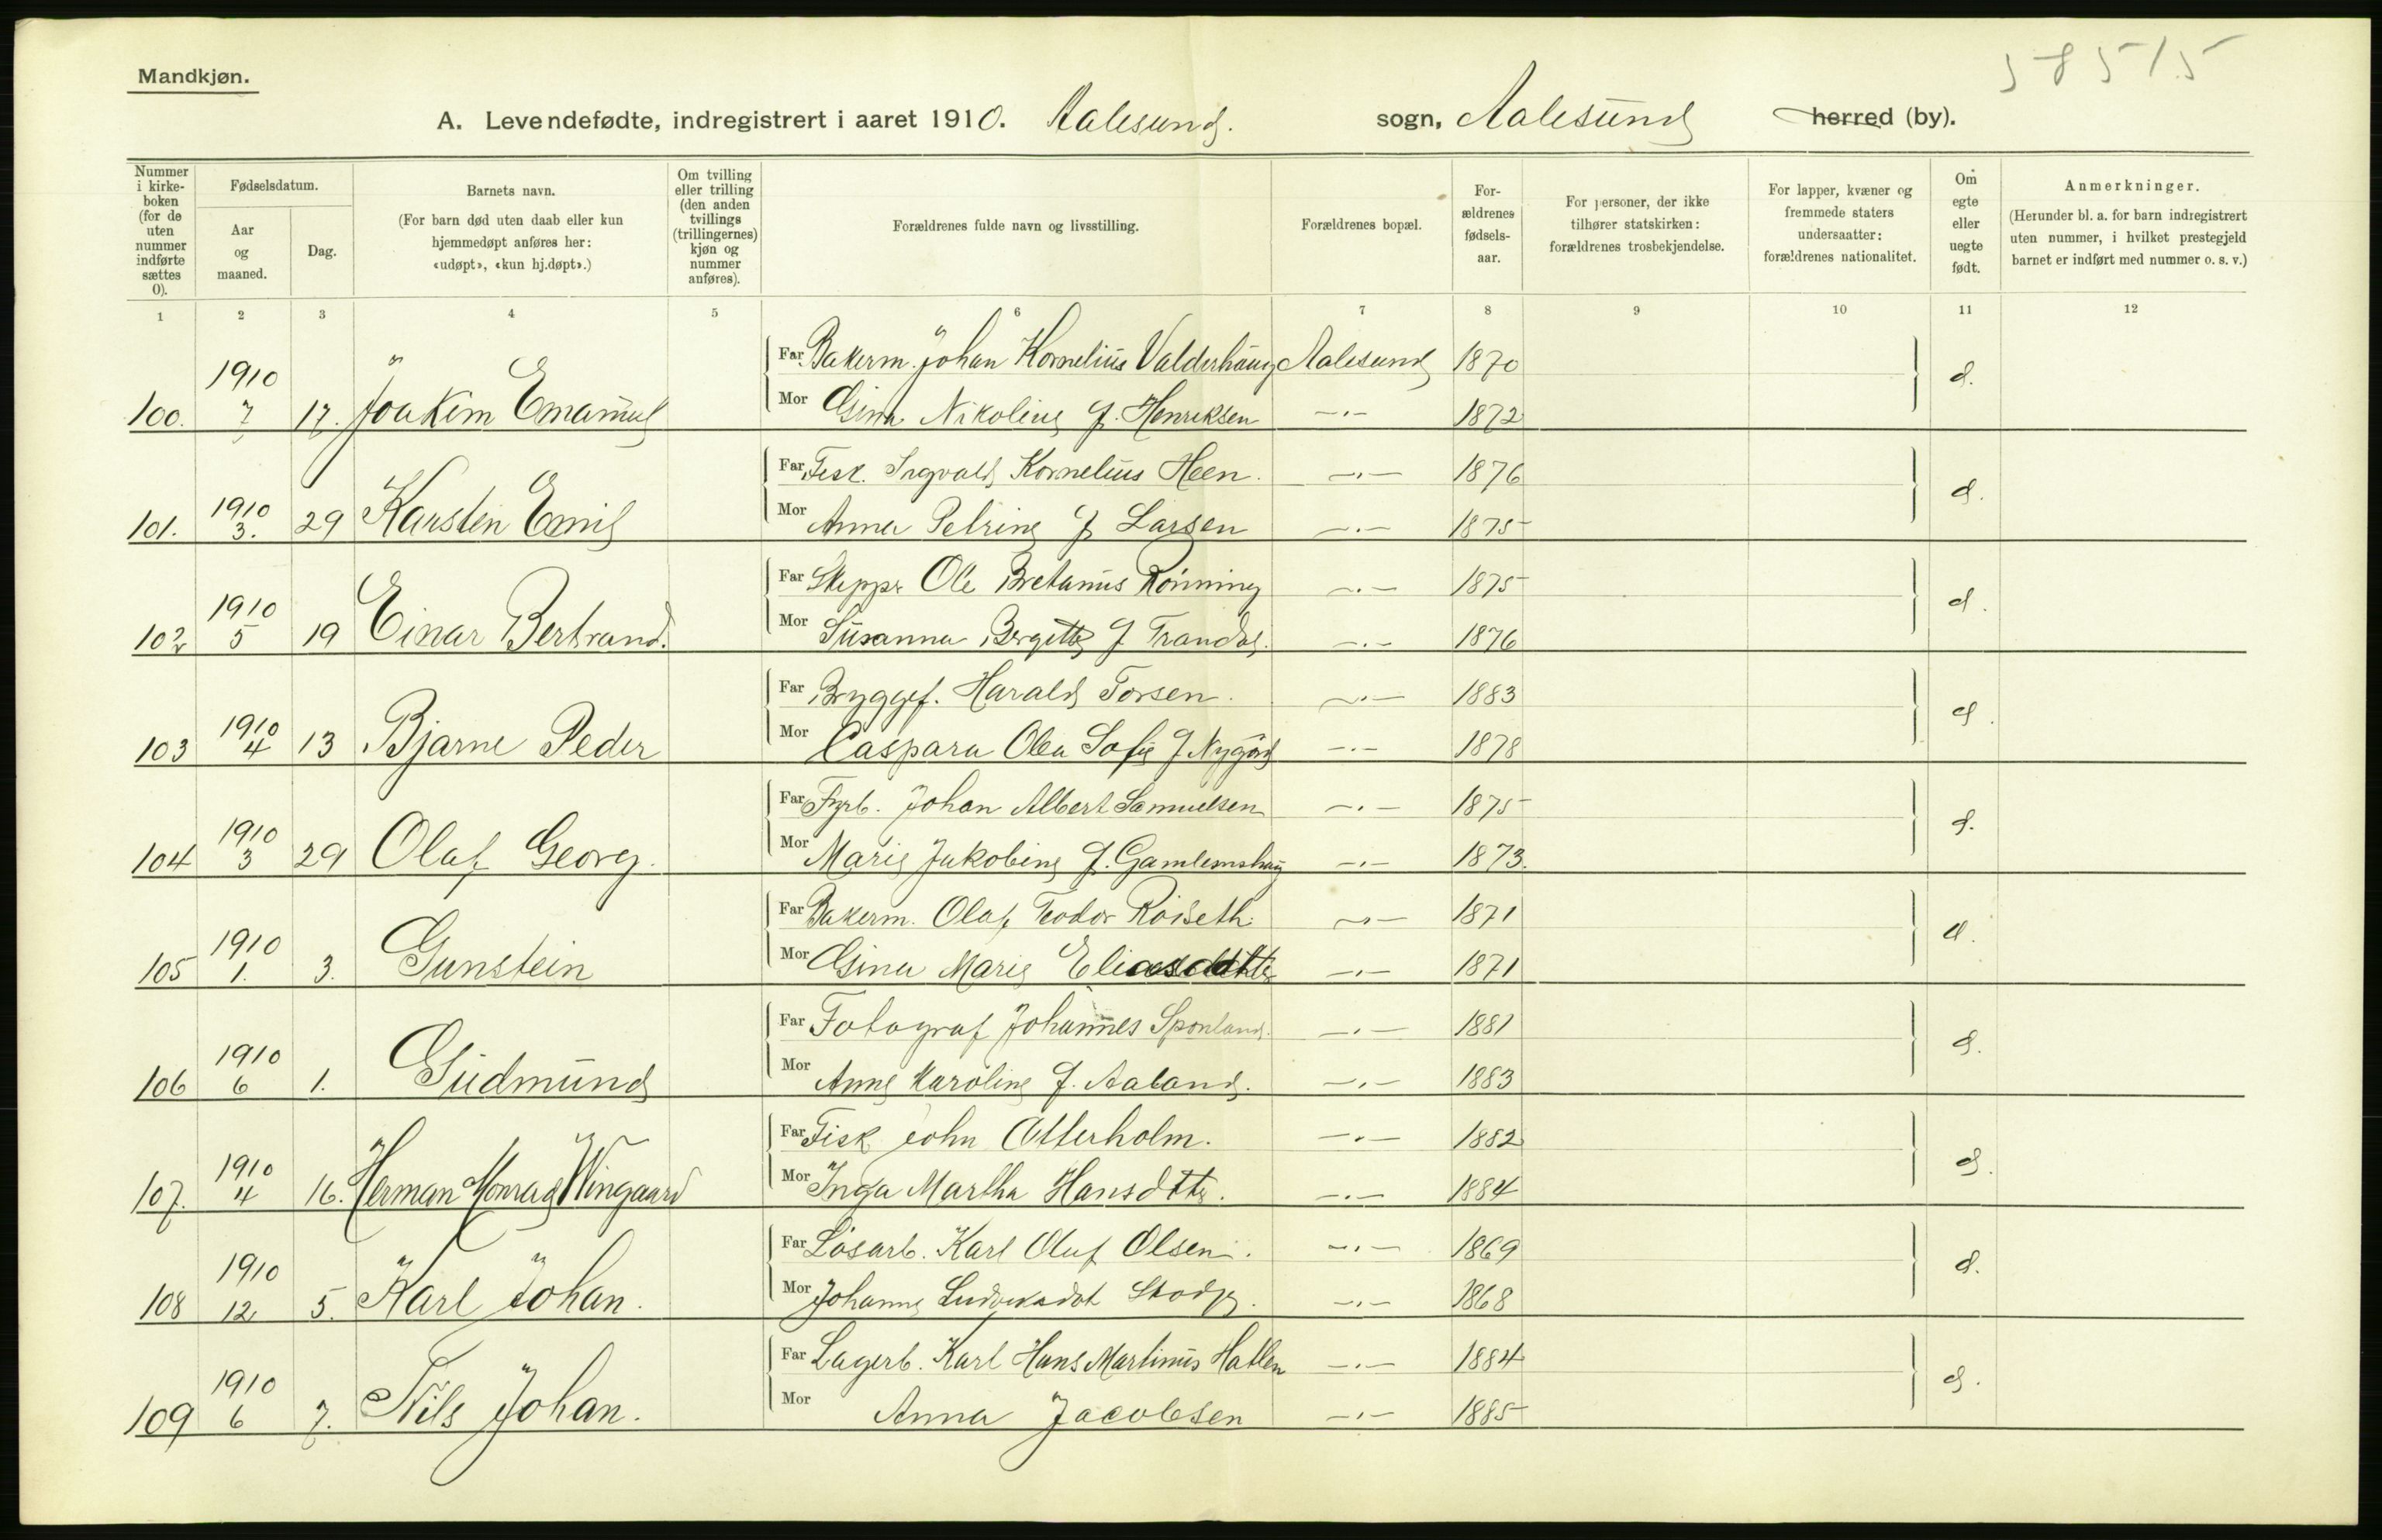 58515
Mandkjøn.
A. Levendefødte, indregistrert i aaret 1910. Aalesund. sogn, Aalesund herred (by).
Nummer i kirke-boken (for de uten nummer indførte sættes 0).
Fødselsdatum.
Aar og maaned.
Dag.
Barnets navn.
(For barn død uten daab eller kun hjemmedøpt anføres her: «udøpt», «kun hj.døpt».)
Om tvilling eller trilling (den anden tvillings (trillingernes) kjøn og nummer anføres).
Forældrenes fulde navn og livsstilling.
Forældrenes bopæl.
For-ældrenes fødsels-aar.
For personer, der ikke tilhører statskirken: forældrenes trosbekjendelse.
For lapper, kvæner og fremmede staters undersaatter: forældrenes nationalitet.
Om egte eller uegte født.
Anmerkninger.
(Herunder bl. a. for barn indregistrert uten nummer, i hvilket prestegjeld barnet er indført med nummer o. s. v.)
1 2 3 4 5 6 7 8 9 10 11 12
Far Bakerm. Johan Kornelius Valderhaug Aalesund 1870
100. 1910 7 17. Joakim Emanuel
Mor Gina Nikoline f. Henriksen —„— 1872
Far Fisk. Ingvald Kornelius Heen. —„— 1876
101. 1910 3. 29 Karsten Emil
Mor Anna Petrine f Larsen —„— 1875
Far Skeppr Ole Bretanus Rönning —„— 1875
102 1910 5 19 Einar Bertrand.
Mor Susanna Bergitte f Trandal. —„— 1876
Far Bryggef. Harald Torsen. —„— 1883
103 1910 4 13 Bjarne Peder
Mor Caspara Olea Sofie f Nygård —„— 1878
Far Fyrb. Johan Albert Samuelsen —„— 1875
104 1910 3 29 Olaf Georg.
Mor Marie Jakobine f. Gamlemshaug —„— 1873.
Far Bakerm. Olaf Teodor Röiseth. —„— 1871
105 1910 1. 3. Gunstein
Mor Gina Marie Eliasdtter —„— 1871
Far Fotograf Johannes Sponland. —„— 1881
106 1910 6 1. Gudmund
Mor Anne Karoline f. Aaland. —„— 1883
Far Fisk John Otterholm. —„— 1882
107. 1910 4 16. Herman Monrad Wingaard
Mor Inga Martha Hansdtter. —„— 1884
Far Lösarb. Karl Oluf Olsen. —„— 1869
108 1910 12 5. Karl Johan.
Mor Johanne Ludviksdot —„— 1868
Far Lagerb. Karl Hans Martinus Hatlen —„— 1884
109 1910 6 7. Nils Johan.
Mor Anna Jacobsen —„— 1885